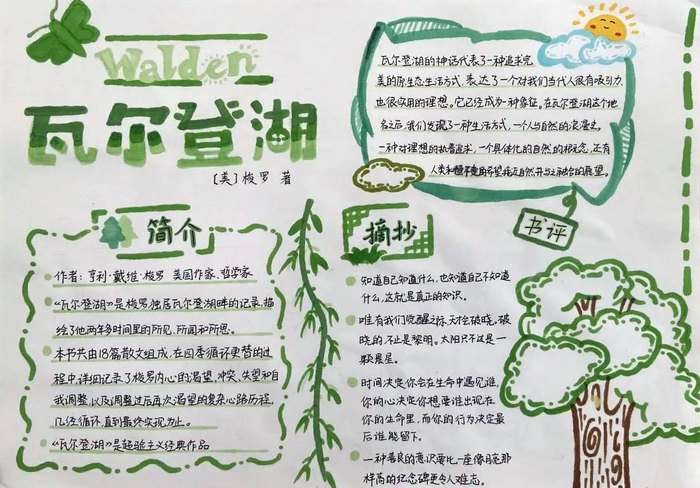 Walden
瓦尔登湖
[美]梭罗 著
瓦尔登湖的神话代表了一种追求完
美的原生态生活方式,表达了一个对我们当代人很有吸引力
也很实用的理想。它已经成为一种象征。在瓦尔登湖这个地
名之后,我们发现了一种生活方式,一个人与自然的浪漫史。
一种对理想的执着追求,一个具体化的自然的概念,还有
人类和
希望接近自然并与之融合的愿望。
书评
简介
作者:亨利·戴维·梭罗 美国作家、哲学家
“瓦尔登湖》是梭罗独居瓦尔登湖畔的记录,描
绘了他两年多时间里的所见、所闻和所思。
本书共由18篇散文组成,在四季循环更替的过
程中,详细记录了梭罗内心的渴望、冲突、失望和自
我调整,以及调整过后再次渴望的复杂心路历程,
几经循环,直到最终实现为止。
“瓦尔登湖》是超验主义经典作品
摘抄
知道自己知道什么,也知道自己不知道
什么,这就是真正的知识。
唯有我们觉醒之际,天才会破晓。破
晓的不止是黎明。太阳只不过是一
颗晨星。
时间决定你会在生命中遇见谁,
你的心决定你想要谁出现在
你的生命里,而你的行为决定最
后谁能留下。
一种善良的意识要比一座像月亮那
样高的纪念碑更令人难忘。